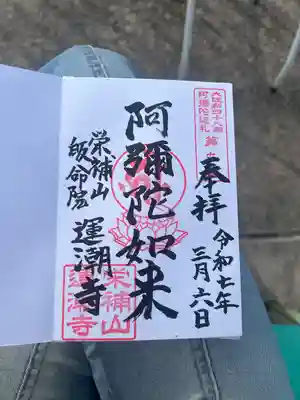 大阪新四十八願
阿弥陀巡礼 第
奉拝
令和七年
三月六日
阿彌陀如来
栄補山
運潮寺
栄補山
運潮寺